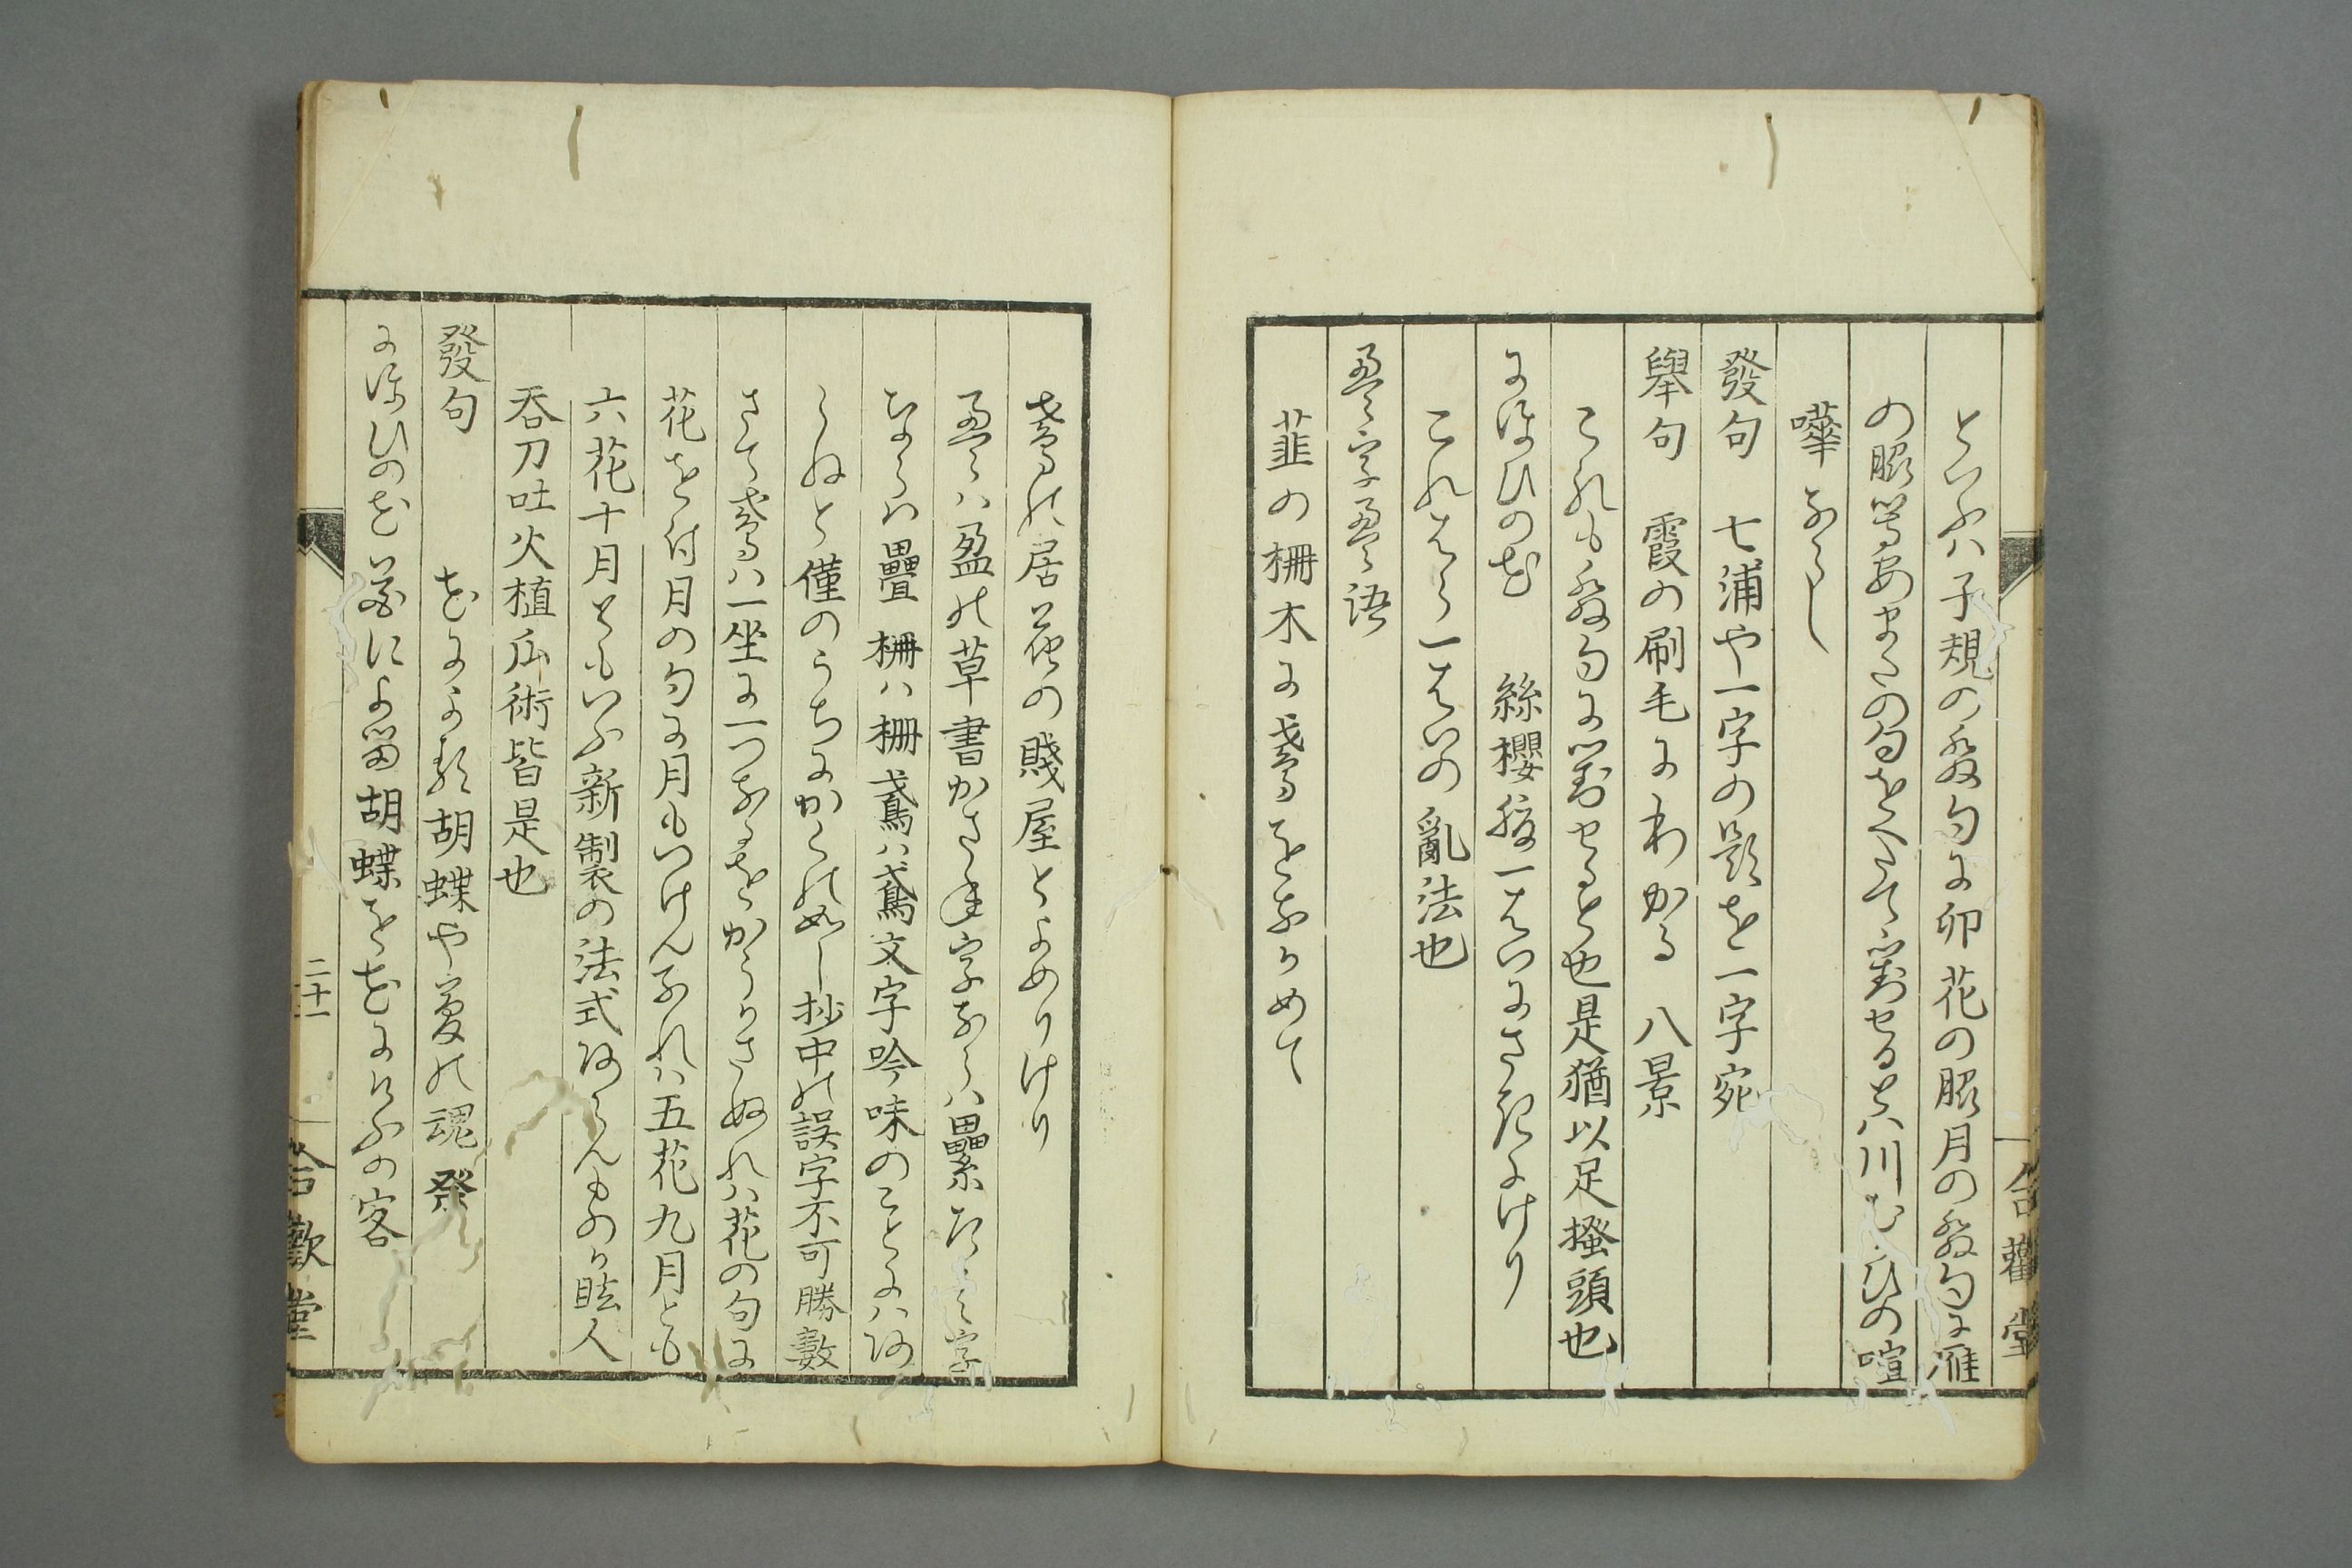 といふハ子規の發句に卯花の脇月の發句に雁
の脇等あまたの句をへたてゝ對せるとハ川むかひの喧
嘩なるへし
發句 七浦や一字の題を一字宛
擧句 霞の刷毛にわかる 八景
これも發句に對せると也是猶以足搔頭也
にほひの花 絲櫻 一はいにさきにけり
これはこれ一はいの亂法也
字 語
韮の柵木に鳶をなかめて
鳶の居 花の賤屋とよめりけり
ハ盈の草書かさね字ならハ纍 字
ならハ疊 柵ハ柵鳶ハ鳶文字吟味のことにハあ
らぬと僅のうちにかくの如し抄中の誤字不可勝數
さて鳶ハ一坐に一つなるをかうかさぬれハ花の句に
花を付月の句に月もつけんなれハ五花九月とも
六花十月ともいふ新製の法式あらんものか眩人
呑刀吐火植瓜術皆是也
發句 花による胡蝶や夢の魂祭
にほひの花 によする胡蝶を花にけふの客
二十一
合歡堂
合歡堂